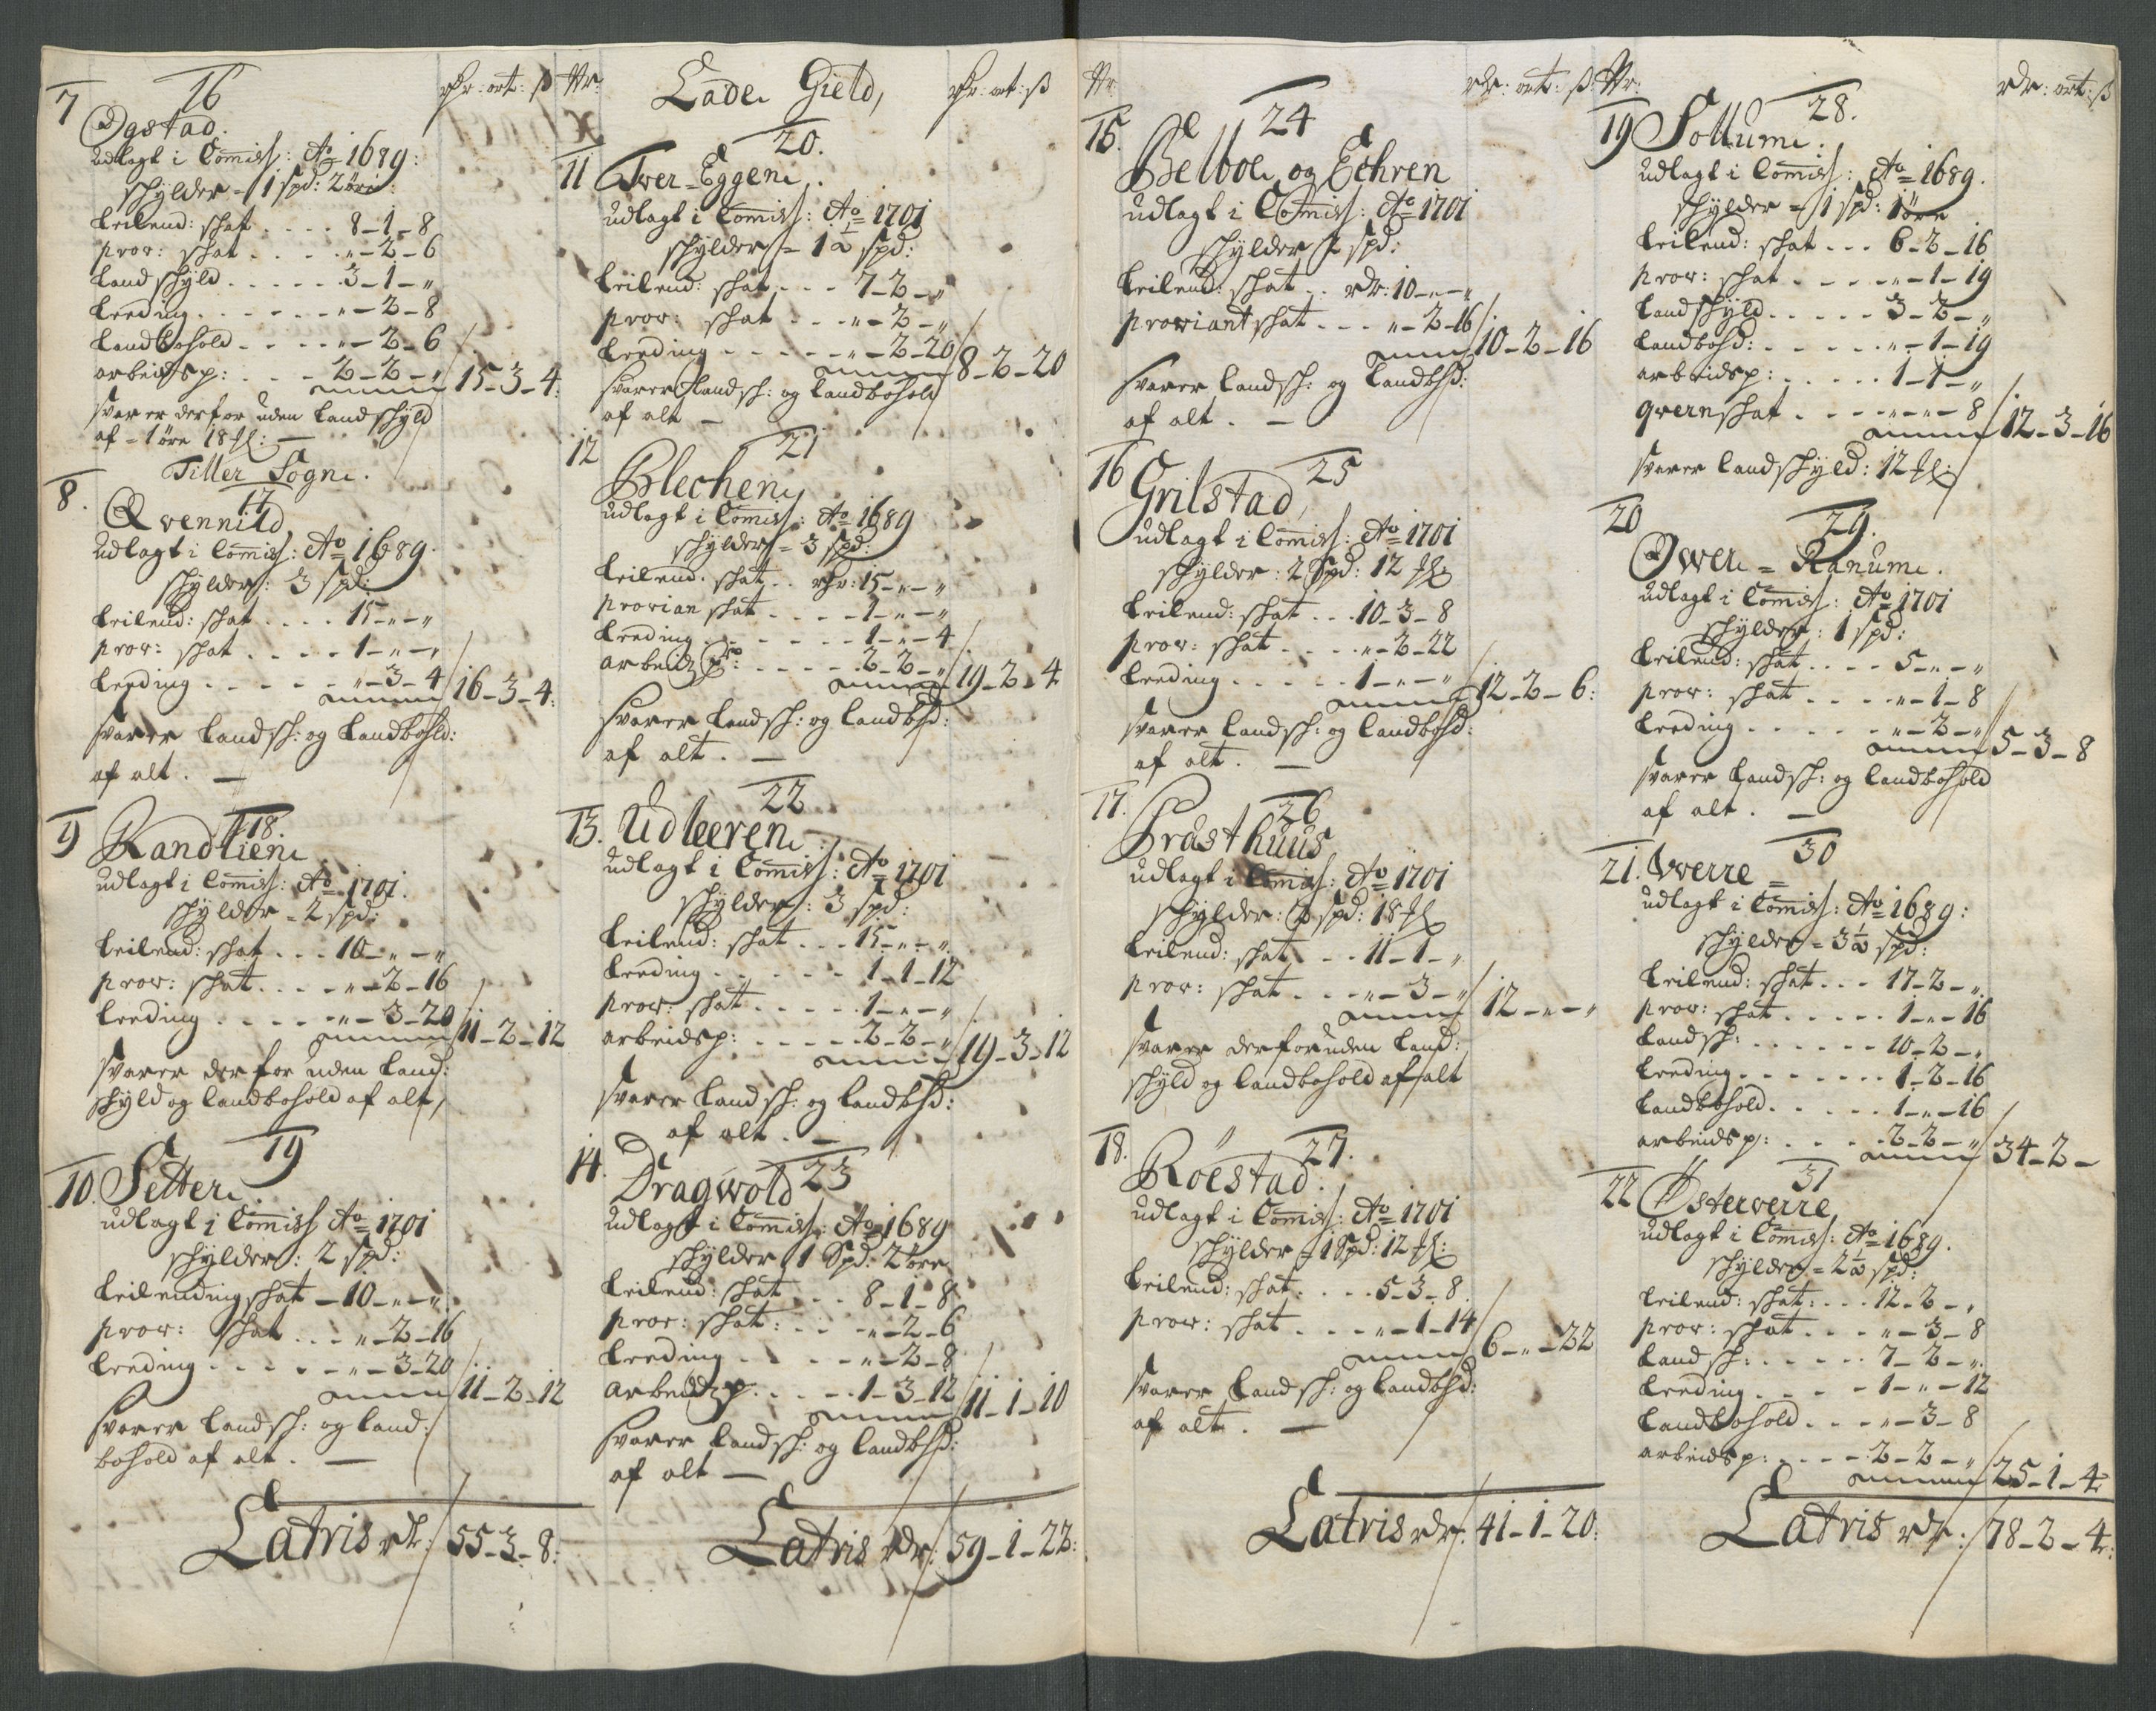 Rdr: ort: ß
7 16
Ogstad.
udlagt i Comiss: Ao 1689:
schylder = 1 spd: 2 öre:
leilend: schat .... 8-1-8
prov: schat .... "-2-6
landschyld ..... 3-1-"
leeding ...... "-2-8
landbohold .... "-2-6
arbeidsp: .... 2-2-" 15-3-4:
svarer derfor uden landschyld
af - 1 öre 18 #:
Tiller Sogn.
8. 17
Qvennild
udlagt i Comiss: Ao 1689.
schylder: 3 spd:
leilend: schat .... 15-"-"
prov: schat .... 1-"-"
leeding ..... "-3-4 16-3-4:
svarer landsch: og landbohld:
af alt. —
9 18.
Randlien
udlagt i Comiss: Ao 1701.
schylder = 2 spd:
leilend: schat ... 10-"-"
prov: schat .... "-2-16
leeding ..... "-3-20 11-2-12
svarer derfor uden land:
schyld og landbohold af alt,
19
10. Setter
udlagt i Comiss Ao 1701
schylder: 2 spd:
leilendingschat - 10-"-"
prov: schat ... "-2-16
leeding ..... "-3-20 11-2-12
svarer landsch: og land:
bohold af alt. —
Latris rdr: 55-3-8:
Nr: Lade Gield, Rdr: ort: ß
20.
11 Tver=Eggen.
udlagt i Comiss: Ao 1701
schylder = 1½ spd:
leilend: schat ... 7-2-"
prov: schat ... "-2-"
leeding ..... "-2-20 8-2-20
svarer landsch: og landbohold
af alt —
12 21
Blechen
udlagt i Comiss: Ao 1689
schylder = 3 spd:
leilend: schat .. rdr: 15-"-"
provian schat .... 1-"-"
leeding ...... 1-"-4
arbeidz P: .... 2-2-" 19-2-4
svarer landsch: og landbhd:
af alt. —
22
13. Udleeren
udlagt i Comiss: Ao 1701
schylder: 3 spd:
leilend: schat ... 15-"-"
leeding ..... 1-1-12
prov: schat ..... 1-"-"
arbeidsp: ..... 2-2-" 19-3-12
svarer landsch: og landbhd:
af alt. —
14. 23
Dragwold
udlagt i Comiss: Ao 1689
schylder 1 Spd: 2 öre
leilend: schat ... 8-1-8
prov: schat: ... "-2-6
leeding .... "-2-8
arbeidz p. .... 1-3-12 11-1-10
svarer landsch: og landbhd:
af alt —
Latris rdr: 59-1-22:
Nr: rdr: ort: ß:
15. 24
Belboe og Echren
udlagt i Comiss: Ao 1701
schylder 2 spd:
leilend: schat .. rdr: 10-"-"
proviant schat ... "-2-16 10-2-16
svarer landsch: og landbhd:
af alt. —
16 25
Grilstad,
udlagt i Comiss: Ao 1701
schylder: 2 Spd: 12 #
leilend: schat ... 10-3-8
prov: schat .... "-2-22
leeding ..... 1-"-" 12-2-6:
svarer landsch: og landbohd:
af alt. —
17. 26
Frasthuus
udlagt i Comiss: Ao 1701
schylder: 2 spd: 18 #
leilend: schat ... 11-1-"
prov: schat ... "-3-" 12-"-"
svarer derforuden land:
schyld og landbohold af alt
18. 27.
Röestad.
udlagt i Comiss: Ao 1701
schylder = 1 Spd: 12 #:
leilend: schat .... 5-3-8
prov: schat .... "-1-14 6-"-22
svarer landsch: og landbhd:
af alt. —
Latris rdr: 41-1-20:
Nr: rdr: ort: ß
28.
19 Sollum.
udlagt i Comiss: Ao 1689.
schylder = 1 spd: 1 öre
leilend: schat ... 6-2-16
prov: schat .... "-1-19
landschyld ..... 3-2-"
landbohd: ..... "-1-19
arbeidsp: ..... 1-1-"
qvernschat .... "-"-8 12-3-16
svarer landschyld: 12 #:
20 29.
Over=Ranum.
udlagt i Comiss: Ao 1701
schylder: 1 spd:
leilend: schat .... 5-"-"
prov: schat .... "-1-8
leeding ..... "-2-" 5-3-8
svarer landsch: og landbohold
af alt. —
30
21. Werre =
udlagt i Comiss: Ao 1689:
schylder = 3½ spd:
leilend: schat ... 17-2-"
prov: schat ..... 1-"-16
landsch: ...... 10-2-"
leeding ....... 1-2-16
landbohold ..... 1-"-16
arbeidsp: .... 2-2-" 34-2-
31
22 Österwerre
udlagt i Comiss: Ao 1689.
schylder = 2½ spd:
leilend: schat: ... 12-2-"
prov: schat ... "-3-8
landsch: ..... 7-2-"
leeding ..... 1-"-12
landbohold ... "-3-8
arbeidsp: .... 2-2-" 25-1-4
Latris rdr: 78-2-4: